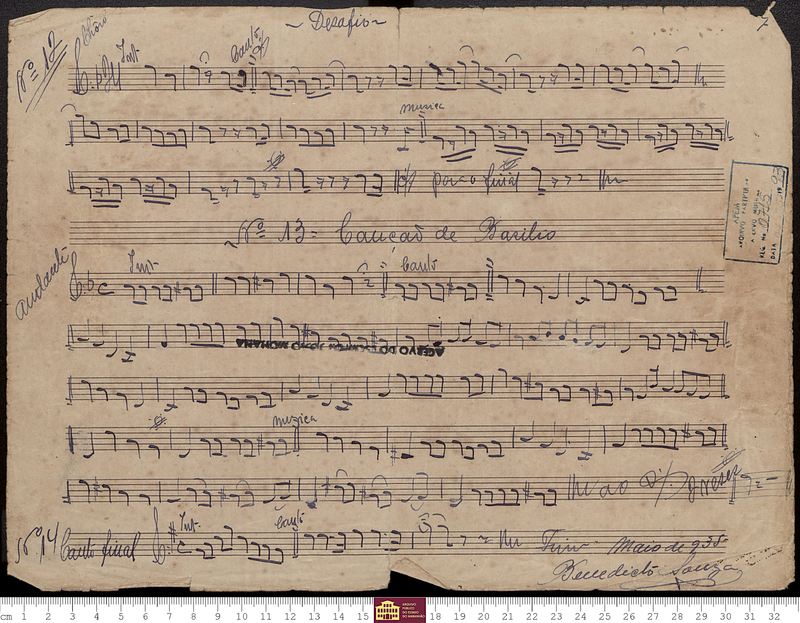 ~ Desafio ~
7
Nº 12
Chôro
Int.
Canto
musica
para final
APEM
REG. No
DATA
Nº 13 = Cancaõ de Basilio
andante
Int.
Canto
ACERVO DO PADRE JOÃO MOHANA
musica
ao
3 vezes
Nº 14
Canto final
Int.
Canto
Fim
Maio de 935
Benedicto Souza
cm 1 2 3 4 5 6 7 8 9 10 11 12 13 14 15 16 18 19 20 21 22 23 24 25 26 27 28 29 30 31 32
ARQUIVO PÚBLICO DO ESTADO DO MARANHÃO